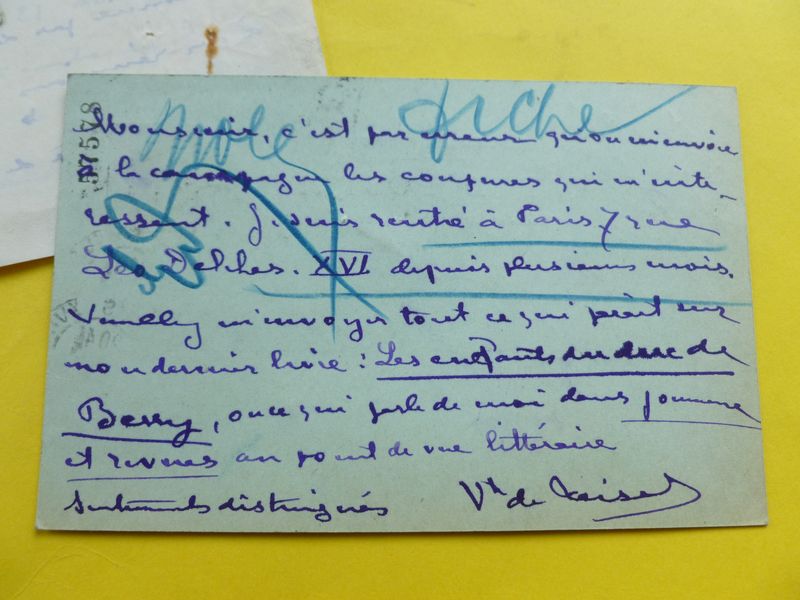 fiche
37578
Monsieur, c'est par erreur qu'on m'envoie
à la campagne les coupures qui m'inté-
ressent. Je suis rentré à Paris 7 rue
Léo Delibes. XVI depuis plusieurs mois.
Veuillez m'envoyer tout ce qui paraît sur
mon dernier livre : Les enfants du duc de
Berry, ou ce qui parle de moi dans journaux
et revues au point de vue littéraire
Sentiments distingués Vte de Reiset